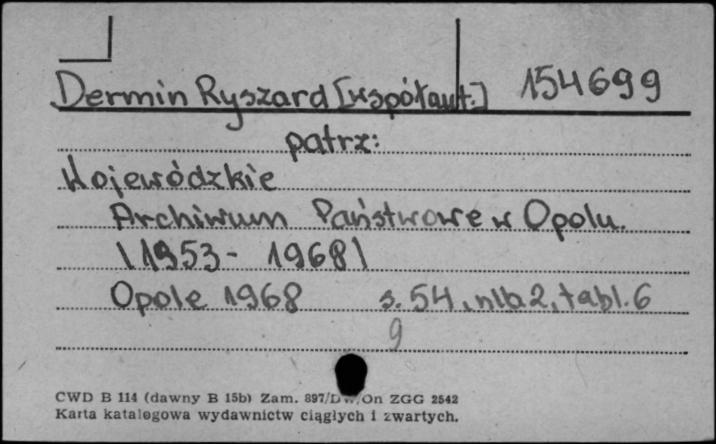 Dermin Ryszard [współaut.] 154699
patrz:
Wojewódzkie
Archiwum Państwowe w Opolu.
\1953 - 1968\
Opole 1968 s. 54, nlb. 2, tabl. 6
9
CWD B 114 (dawny B 15b) Zam. 897/Dw/On ZGG 2542
Karta katalogowa wydawnictw ciągłych i zwartych.